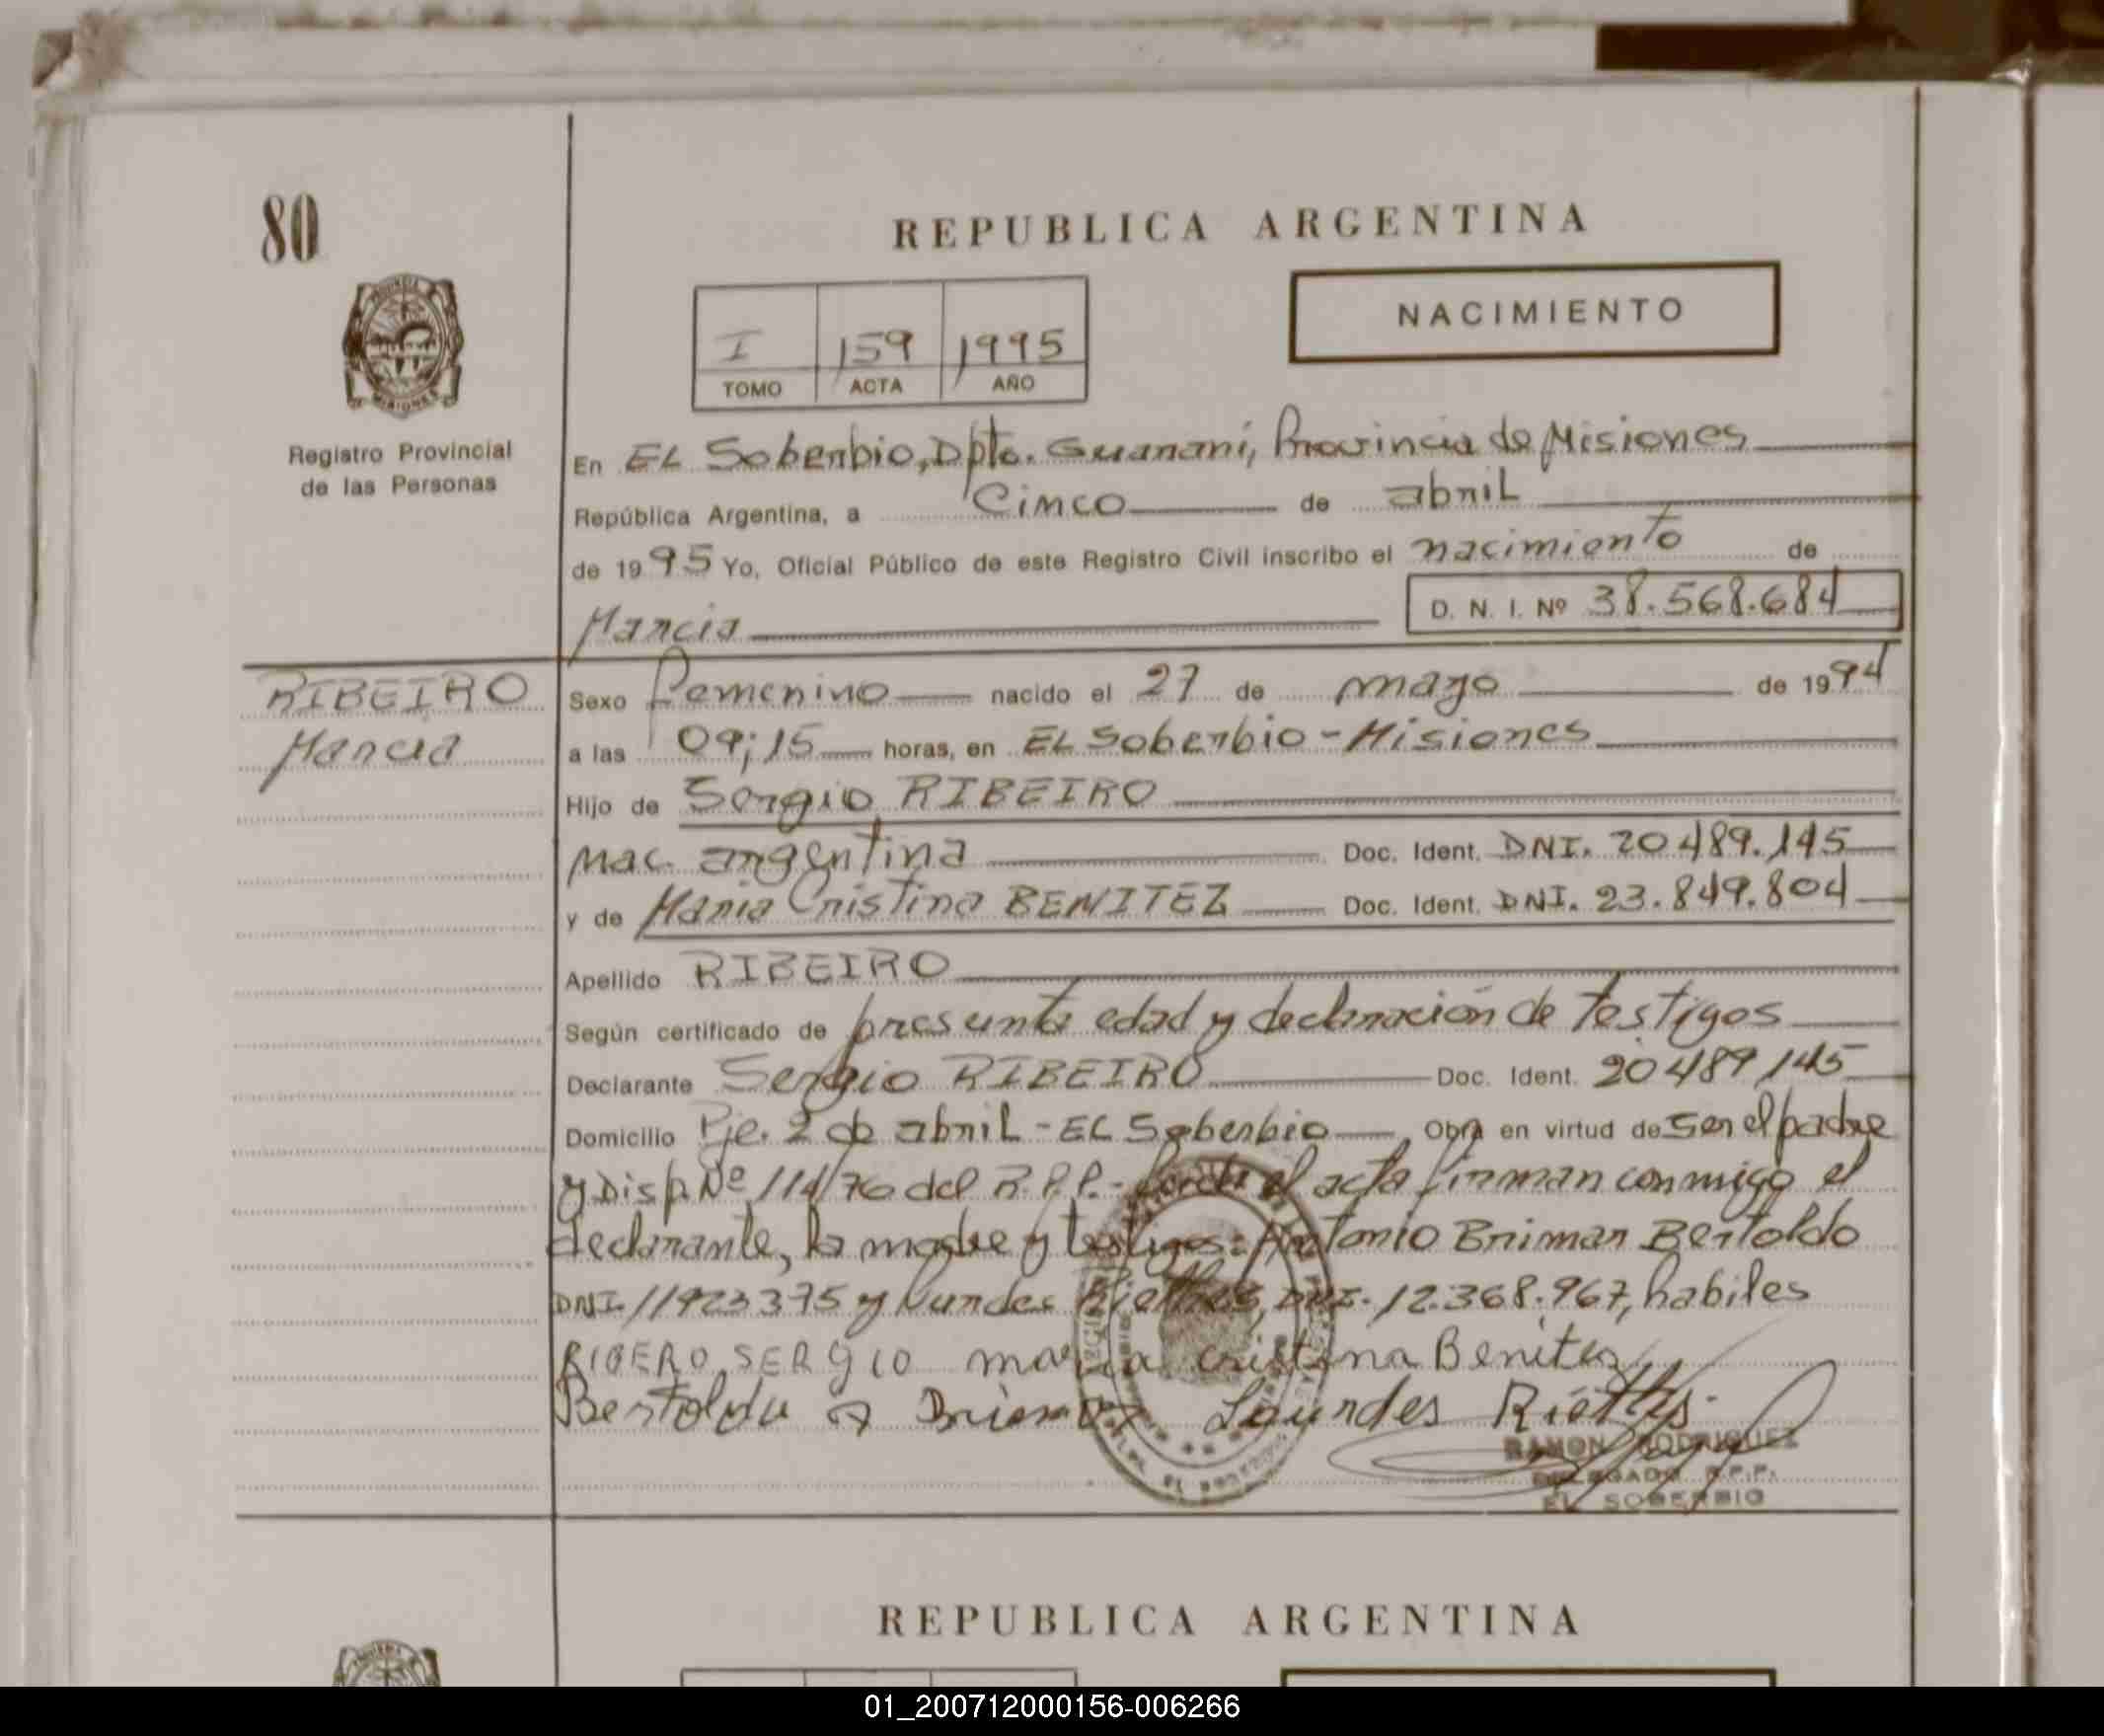 80
REPUBLICA ARGENTINA
NACIMIENTO
I 159 1995
TOMO ACTA AÑO
Registro Provincial
de las Personas
En EL Soberbio, Dpto. Guarani, Provincia de Misiones
República Argentina, a Cinco de abril
de 1995 Yo, Oficial Público de este Registro Civil inscribo el nacimiento de
Marcia D. N. I. Nº 38.568.684
RIBEIRO
Marcia
Sexo Femenino nacido el 27 de mayo de 1994
a las 09;15 horas, en EL Soberbio - Misiones
Hijo de Sergio RIBEIRO
nac. argentina Doc. Ident. DNI. 20489.145
y de Maria Cristina BENITEZ Doc. Ident. DNI. 23.849.804
Apellido RIBEIRO
Según certificado de presunta edad y declaración de testigos
Declarante Sergio RIBEIRO Doc. Ident. 20489145
Domicilio Pje. 2 de abril - EL Soberbio Obra en virtud de ser el padre
y Disp. Nº 114/76 del R.P.P. - el acta firman conmigo el
declarante, la madre y testigos: Antonio Briman Bertoldo
DNI. 11923375 y Lurdes Rieth DNI. 12.368.967, habiles
RIBERO SERGIO maria cristina Benitez
Bertoldo a Briman Lourdes
RAMON RODRIGUEZ
DELEGADO R.P.P.
EL SOBERBIO
REPUBLICA ARGENTINA
01_200712000156-006266